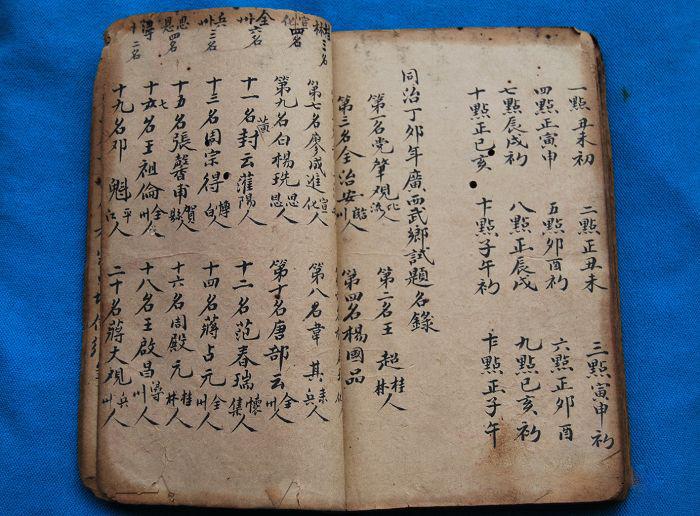 一點丑未初 二點正丑未 三點寅申初
四點正寅申 五點卯酉初 六點正卯酉
七點辰戌初 八點正辰戌 九點巳亥初
十點正巳亥 十點子午初 點正子午
同治丁卯年廣西武鄉試題名錄
第一名党肇观 人 第二名王超桂林人
第三名全治安臨川人 第四名楊國品
桂林三名
宣化四名
全州六名
兵州三名
思恩四名
潯 二名
第七名廖成進宣化人 第八名韋其 人
第九名白楊珗思恩人 第十名唐部云全州人
十一名黃封云灌陽人 十二名范春瑞懷集人
十三名周宗得博白人 十四名蔣占元全州人
十五名張馨甫賀縣人 十六名周殿元桂林人
十七名王祖倫全州人 十八名王啟昌潯州人
十九名邓魁平江人 二十名蔣大观兵州人